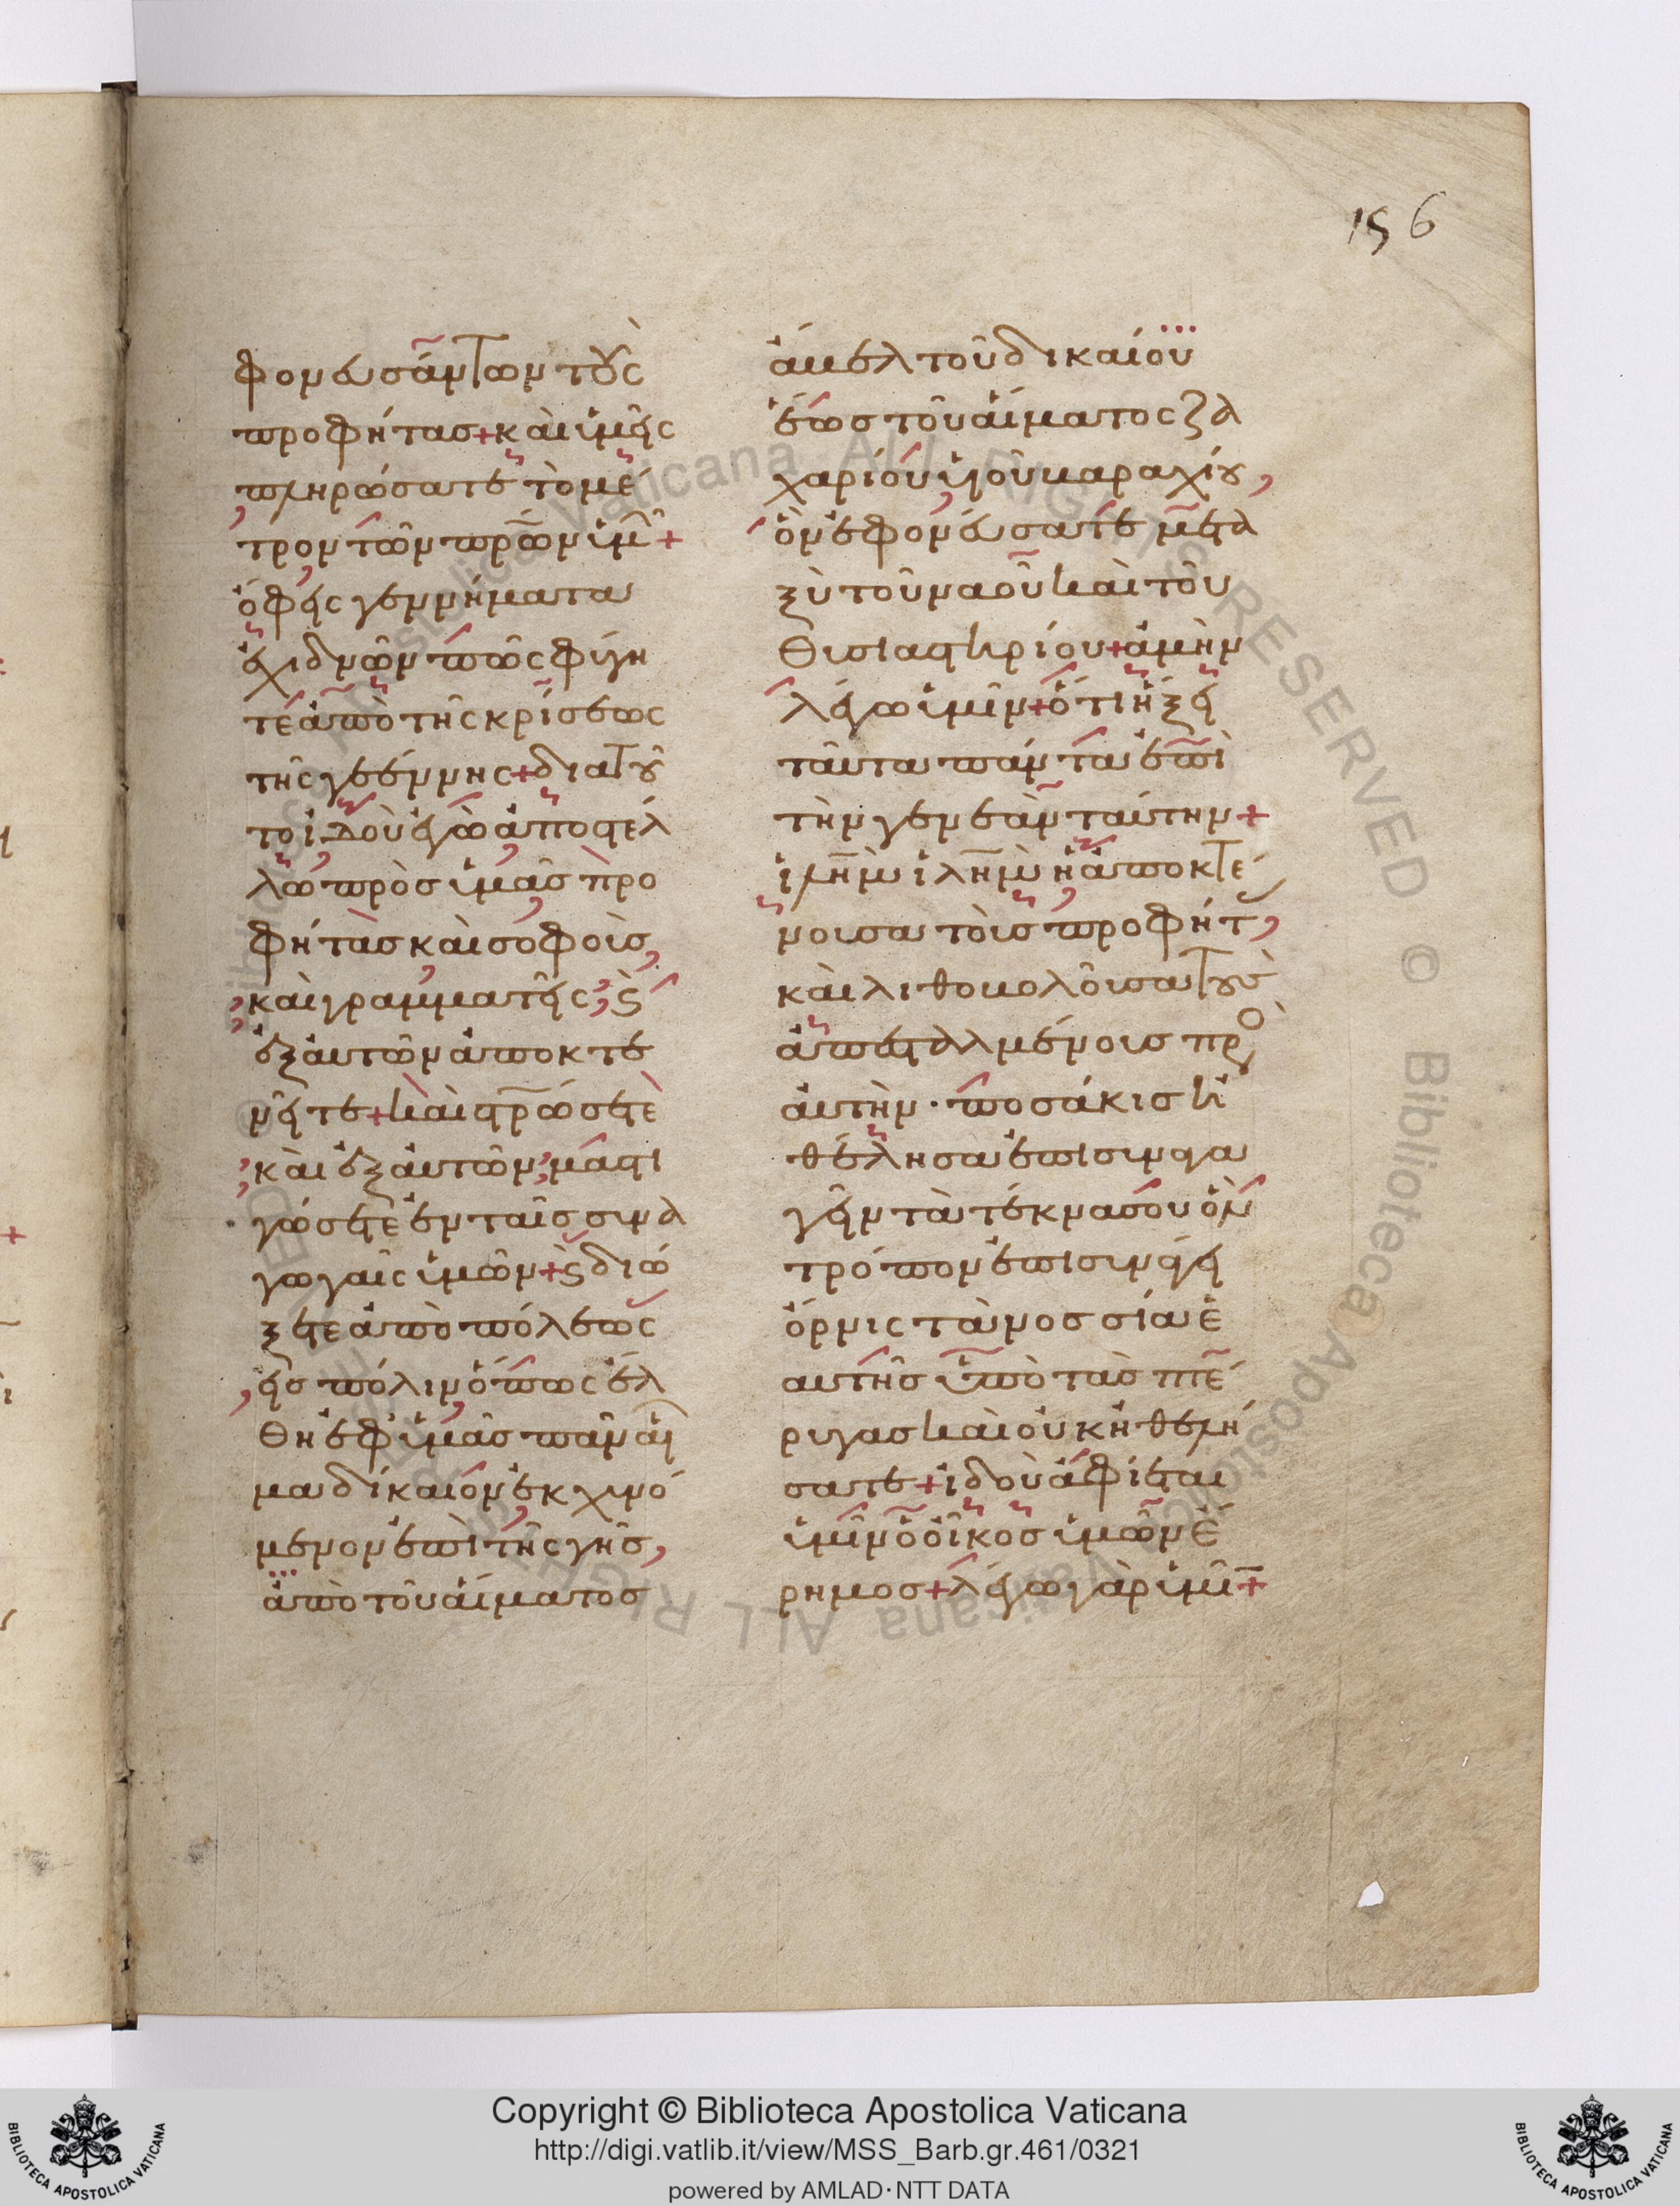 156
φονευσάντων τοὺς
προφήτας + καὶ ὑμεῖς
πληρώσατε τὸ μέ
τρον τῶν πρων ὑμ +
ὄφεις γεννήματα
ἐχιδνῶν πῶς φύγη
τε ἀπὸ τῆς κρίσεως
τῆς γεέννης + διατοῦ
το ἰδοὺ ἐγὼ ἀποστελ
λω πρὸσ ὑμᾶσ προ
φήτασ καὶ σοφοὺσ,
καὶ γραμματεῖς, ϛ
ἐξ αὐτῶν ἀποκτε
νεῖτε + καὶ στρώσετε
καὶ ἐξ αὐτῶν, μαστι
γώσετε ἐν ταῖσ συνα
γωγαῖς ὑμῶν + ϛ διώ
ξετε ἀπὸ πόλεως
εἰσ πόλιν ὅπως ἔλ
θη ἐφ ὑμᾶσ πᾶν αἷ
μα δίκαιον ἐκχυνό
μενον ἐπὶ τῆς γῆσ,
ἀπὸ τοῦ αἵματοσ
ἄμελ τοῦ δικαίου
ἕωσ τοῦ αἵματος ζα
χαρίου υἱοῦ μαραχίου,
ὃν ἐφονεύσατε μετα
ξὺ τοῦ ναοῦ καὶ τοῦ
θυσιαστηρίου + ἀμὴν
λέγω ὑμῖν + ὅτι ἥξει
ταῦτα πάντα ἐπὶ
τὴν γενεὰν ταύτην +
ἱλημ ἱλημ ἡ ἀποκτέ
νουσα τοὺσ προφήτ,
καὶ λιθομολοῦσα τοὺσ
ἀπεσταλμένουσ πρὸ
αὐτὴν · ποσάκισ ἠ
θέλησα ἐπισυνα
γεῖν τὰ τέκνα σου ὃν
τρόπον ἐπισυνάγει
ὄρνις τὰ νοσσία ἑ
αυτῆσ ὑπὸ τὰσ πτέ
ρυγασ καὶ οὐκ ἠθελή
σατε + ἰδοὺ ἀφίεται
ὑμῖν ὁ οἶκοσ ὑμῶν ἔ
ρημοσ + λέγω γὰρ ὑμῖ +
Copyright © Biblioteca Apostolica Vaticana
http://digi.vatlib.it/view/MSS_Barb.gr.461/0321
powered by AMLAD·NTT DATA
BIBLIOTECA APOSTOLICA VATICANA
BIBLIOTECA APOSTOLICA VATICANA